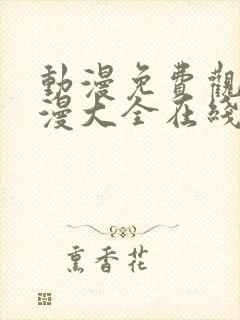 動漫免費觀
漫大全在綫
熏香花